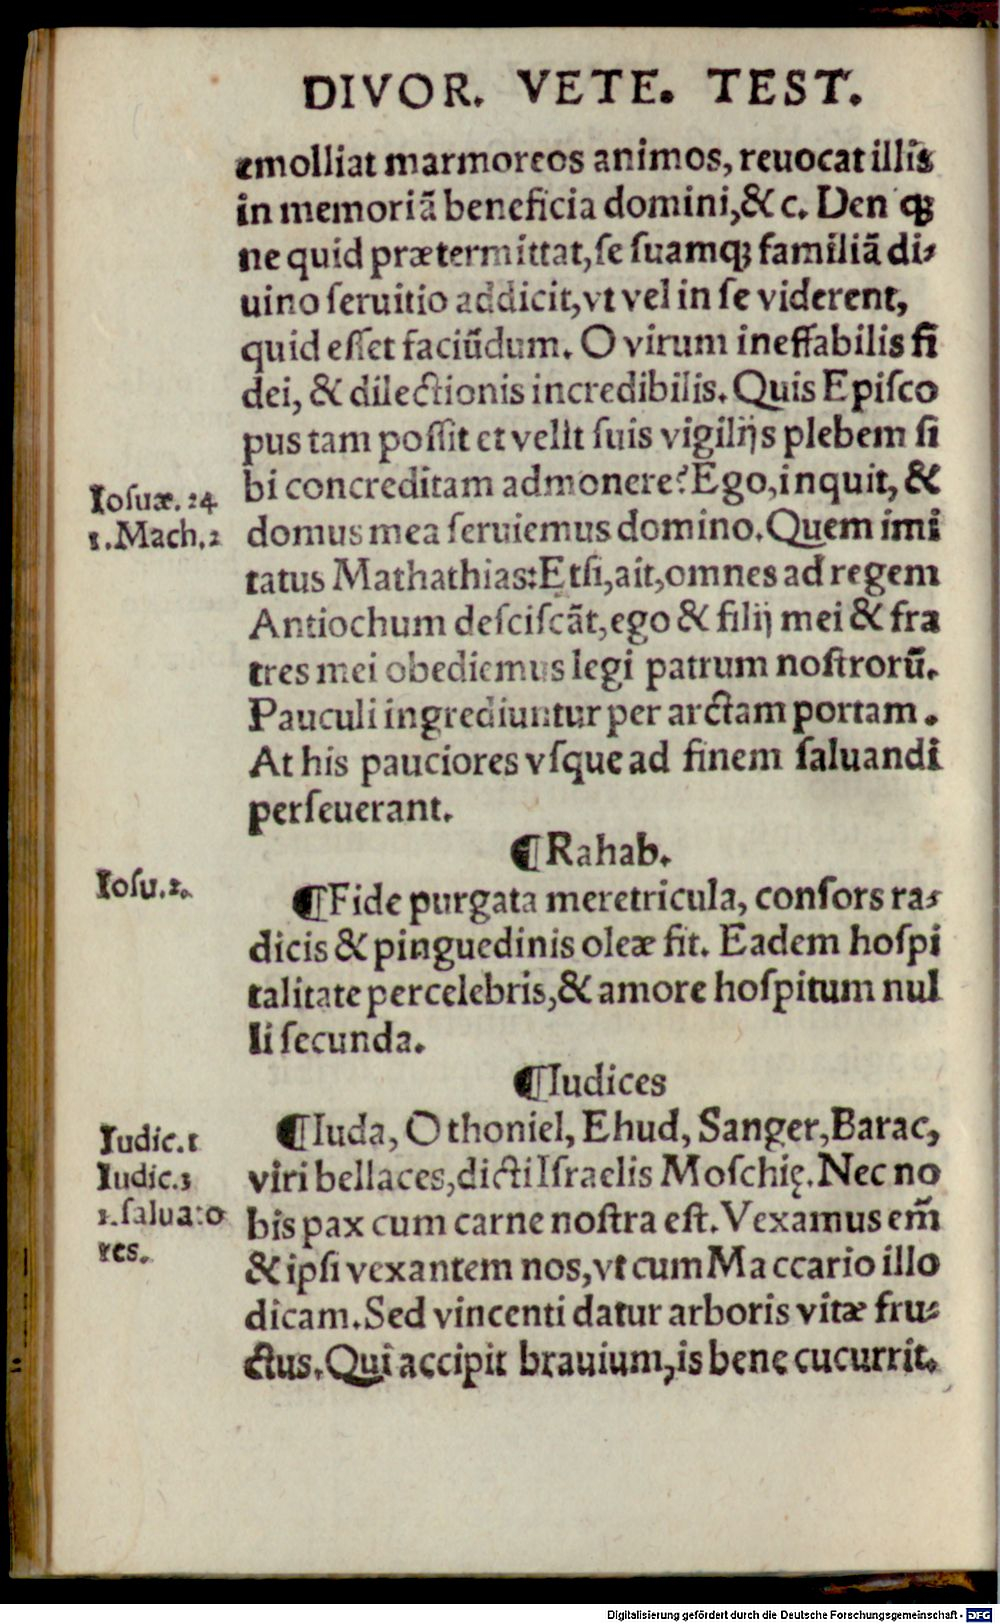 DIVOR. VETE. TEST.
emolliat marmoreos animos, reuocat illis
in memoriã beneficia domini,& c. Den qꝫ
ne quid prætermittat,ſe ſuamqꝫ familiã di⸗
uino ſeruitio addicit,vt vel in ſe viderent,
quid eſſet faciũdum. O virum ineffabilis fi
dei, & dilectionis incredibilis. Quis Epiſco
pus tam poſſit et velit ſuis vigilijs plebem ſi
Ioſuæ. 24
bi concreditam admonere? Ego,inquit, &
1.Mach.2
domus mea ſeruiemus domino. Quem imi
tatus Mathathias: Etſi,ait,omnes ad regem
Antiochum deſciſcãt,ego & filij mei & fra
tres mei obediemus legi patrum noſtrorũ.
Pauculi ingrediuntur per arctam portam.
At his pauciores vſque ad finem ſaluandi
perſeuerant.
¶Rahab.
Ioſu.2.
¶Fide purgata meretricula, conſors ra⸗
dicis & pinguedinis oleæ fit. Eadem hoſpi
talitate percelebris,& amore hoſpitum nul
li ſecunda.
¶Iudices
Iudic.1
¶Iuda, Othoniel, Ehud, Sanger,Barac,
Iudic.3
viri bellaces,dicti Iſraelis Moſchię. Nec no
1.ſaluato
bis pax cum carne noſtra eſt. Vexamus em̃
res.
& ipſi vexantem nos,vt cum Maccario illo
dicam. Sed vincenti datur arboris vitæ fru⸗
ctus. Qui accipit brauium,is bene cucurrit.
Digitalisierung gefördert durch die Deutsche Forschungsgemeinschaft - DFG